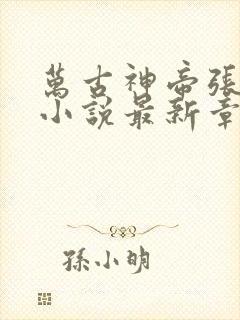 萬古神帝張
小說最新章
孫小明